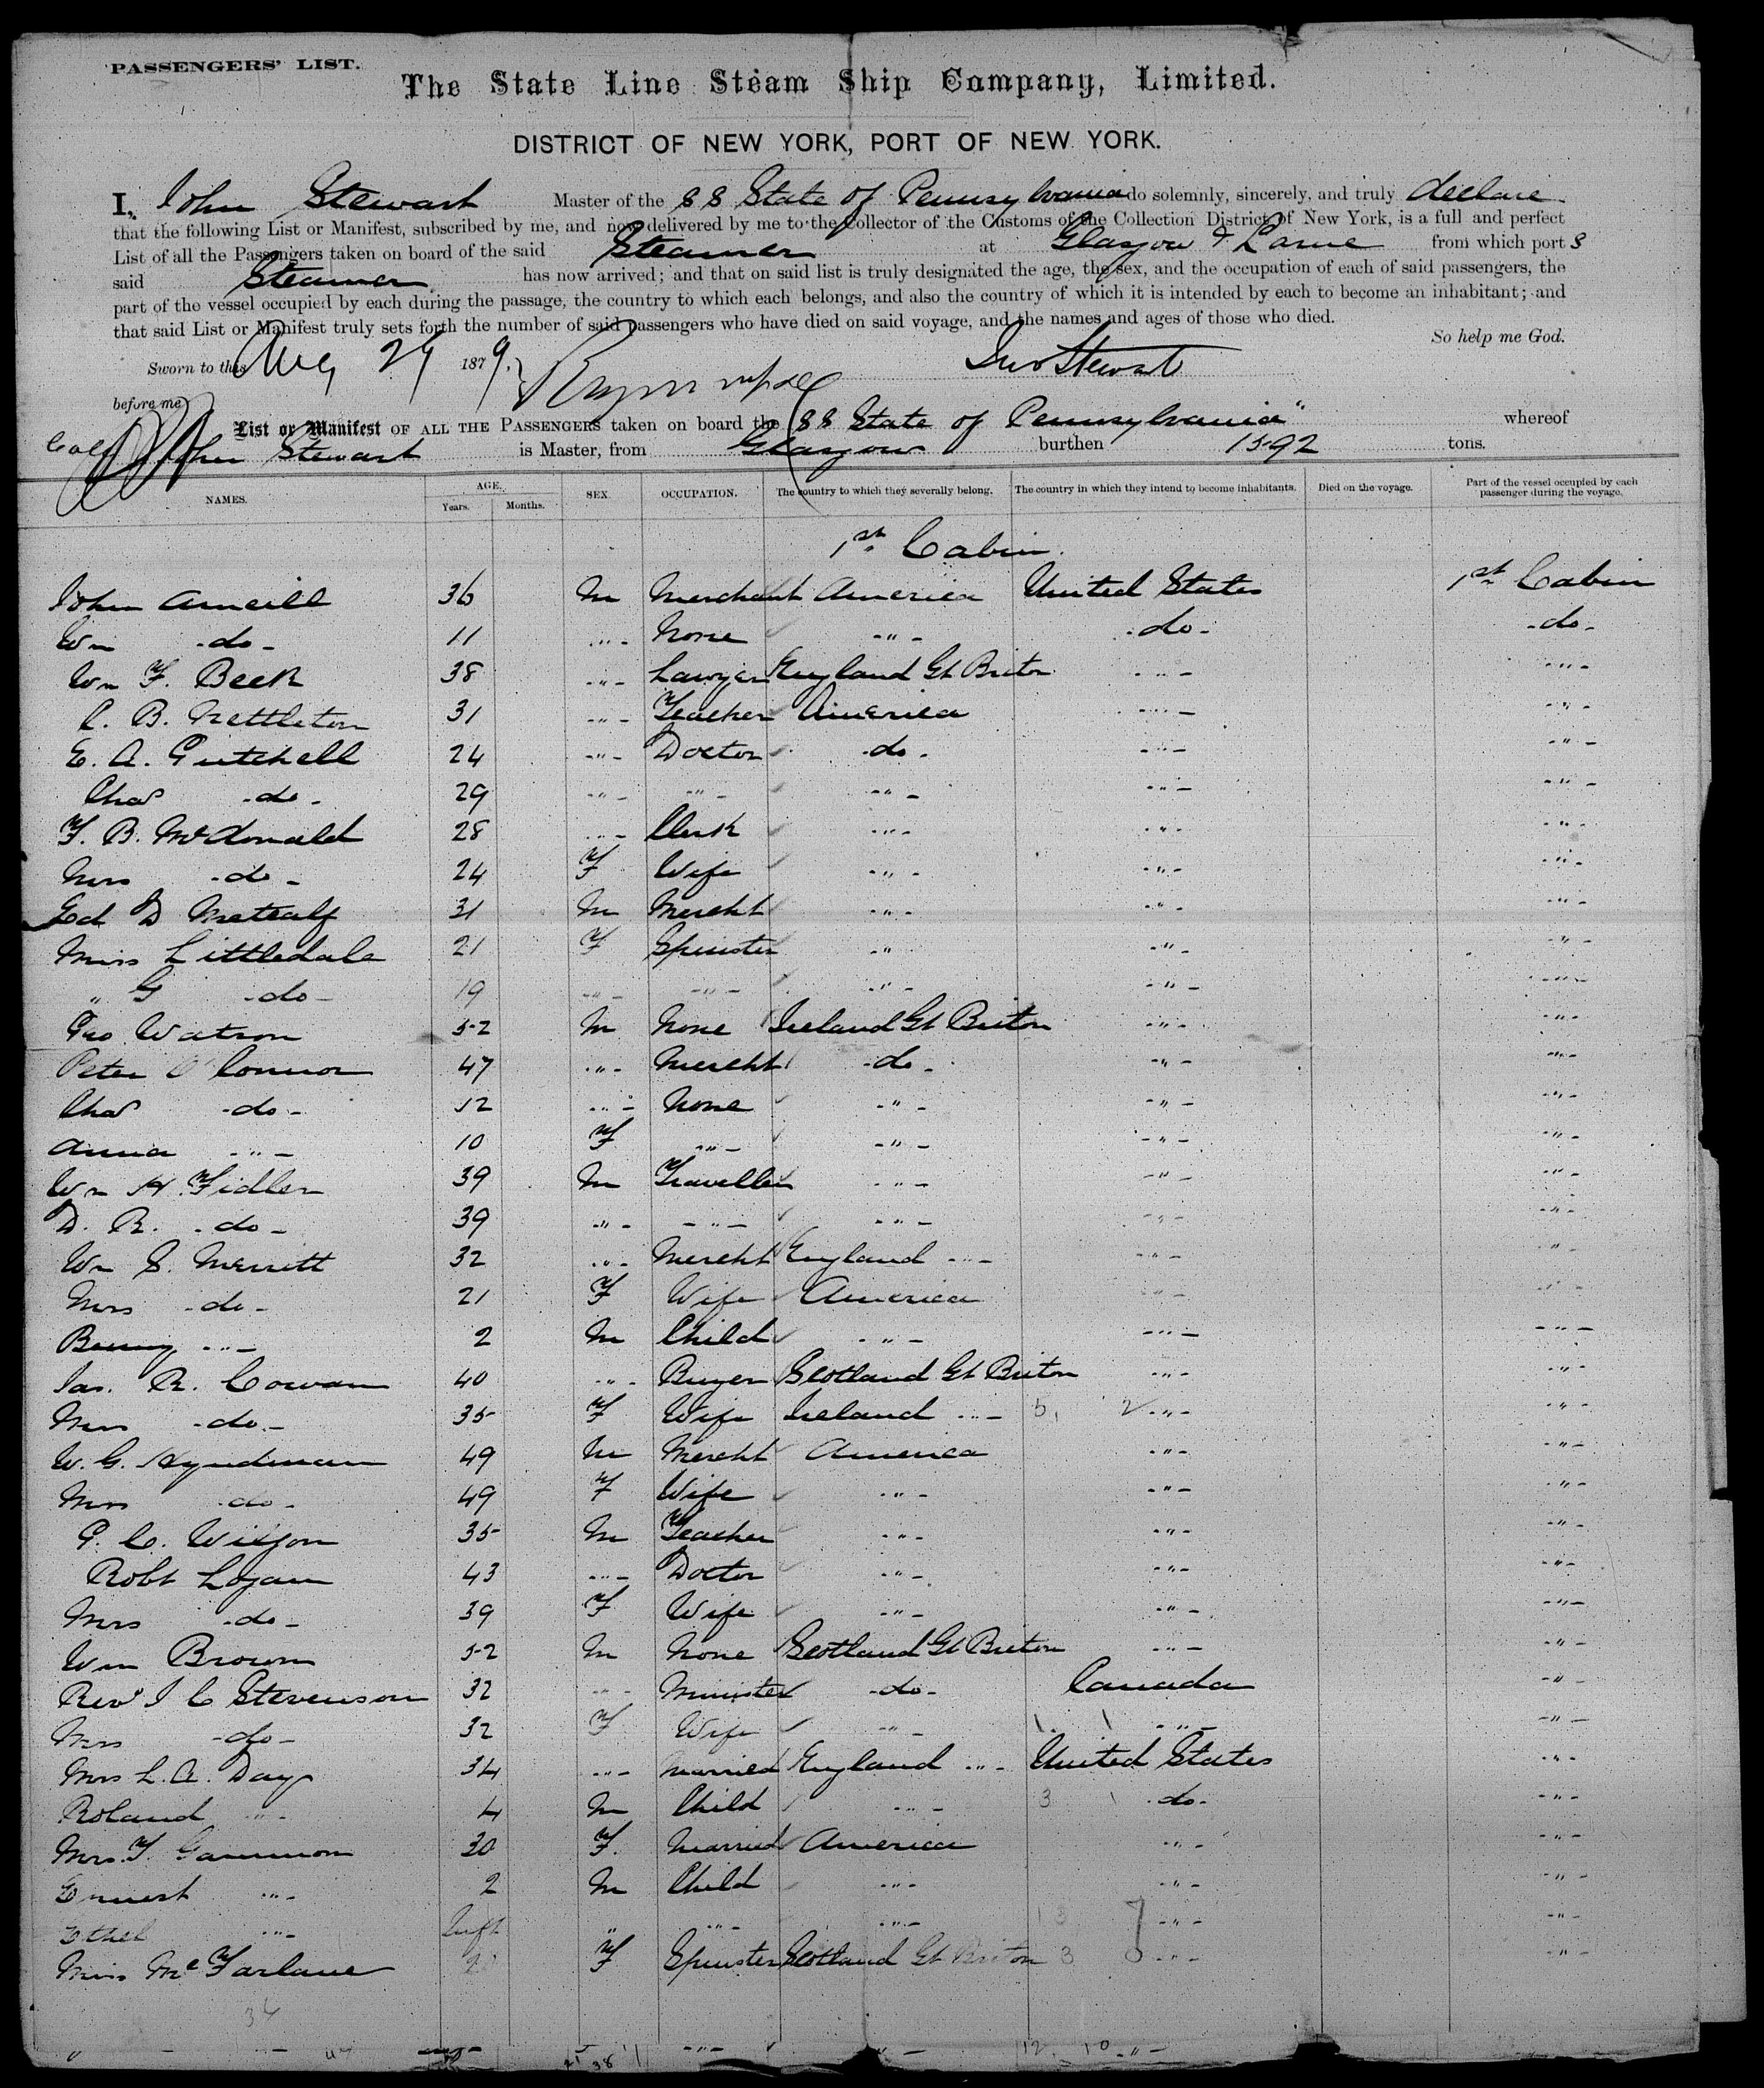 PASSENGERS' LIST.
The State Line Steam Ship Company, Limited.
DISTRICT OF NEW YORK, PORT OF NEW YORK.
I, John Stewart Master of the SS State of Pennsylvania do solemnly, sincerely, and truly declare
that the following List or Manifest, subscribed by me, and now delivered by me to the Collector of the Customs of the Collection District of New York, is a full and perfect
List of all the Passengers taken on board of the said Steamer at Glasgow & Larne from which port s
said Steamer has now arrived; and that on said list is truly designated the age, the sex, and the occupation of each of said passengers, the
part of the vessel occupied by each during the passage, the country to which each belongs, and also the country of which it is intended by each to become an inhabitant; and
that said List or Manifest truly sets forth the number of said passengers who have died on said voyage, and the names and ages of those who died.
So help me God.
Sworn to this Aug 29 1879. Jno Stewart
before me
List or Manifest OF ALL THE PASSENGERS taken on board the "SS State of Pennsylvania" whereof
John Stewart is Master, from Glasgow burthen 1592 tons.
NAMES. AGE. Years. Months. SEX. OCCUPATION. The country to which they severally belong. The country in which they intend to become inhabitants. Died on the voyage. Part of the vessel occupied by each passenger during the voyage.
1st Cabin.
John Arneill 36 M Merchant America United States 1st Cabin
Wm -do- 11 -"- None -"- -do- -do-
Wm F. Beek 38 -"- Lawyer England Gt Briton -"- -"-
C. B. Nettleton 31 -"- Teacher America -"- -"-
E. A. Getchell 24 -"- Doctor -do- -"- -"-
Chas -do- 29 -"- -"- -"- -"- -"-
F. B. McDonald 28 -"- Clerk -"- -"- -"-
Mrs -do- 24 F Wife -"- -"- -"-
Ed D Metcalf 31 M Mercht -"- -"- -"-
Miss Littledale 21 F Spinster -"- -"- -"-
" G -do- 19 -"- -"- -"- -"- -"-
Geo Watson 52 M None Ireland Gt Briton -"- -"-
Peter O'Connor 47 -"- Mercht -do- -"- -"-
Chas -do- 12 -"- None -"- -"- -"-
Anna -"- 10 F -"- -"- -"- -"-
Wm H. Fidler 39 M Traveller -"- -"- -"-
D. R. -do- 39 -"- -"- -"- -"- -"-
Wm S. Merritt 32 -"- Mercht England -"- -"- -"-
Mrs -do- 21 F Wife America -"- -"-
Benny -"- 2 M Child -"- -"- -"-
Jas. R. Cowan 40 -"- Buyer Scotland Gt Briton -"- -"-
Mrs -do- 35 F Wife Ireland -"- 5, 2 -"- -"-
W. G. Hyndman 49 M Mercht America -"- -"-
Mrs -do- 49 F Wife -"- -"- -"-
G. C. Wilson 35 M Teacher -"- -"- -"-
Robt Logan 43 -"- Doctor -"- -"- -"-
Mrs -do- 39 F Wife -"- -"- -"-
Wm Brown 52 M None Scotland Gt Briton -"- -"-
Revd J C Stevenson 32 -"- Minister -do- Canada -"-
Mrs -do- 32 F Wife -"- 1. 1 -"- -"-
Mrs L. A. Day 34 -"- Married England -"- United States -"-
Roland -"- 4 M Child -"- 3 1 -do- -"-
Mrs. F. Gammon 30 F. Married America -"- -"-
Ernest -"- 2 M Child -"- -"- -"-
Ethel -"- Inft " -"- -"- -"- -"-
Miss McFarlane F Spinster Scotland Gt Briton 3 -"- -"-
12. 10 -"-